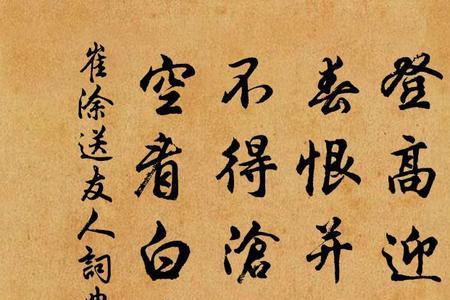 登高迎
春恨并
不得滄
空看白
崔涂送友人詞